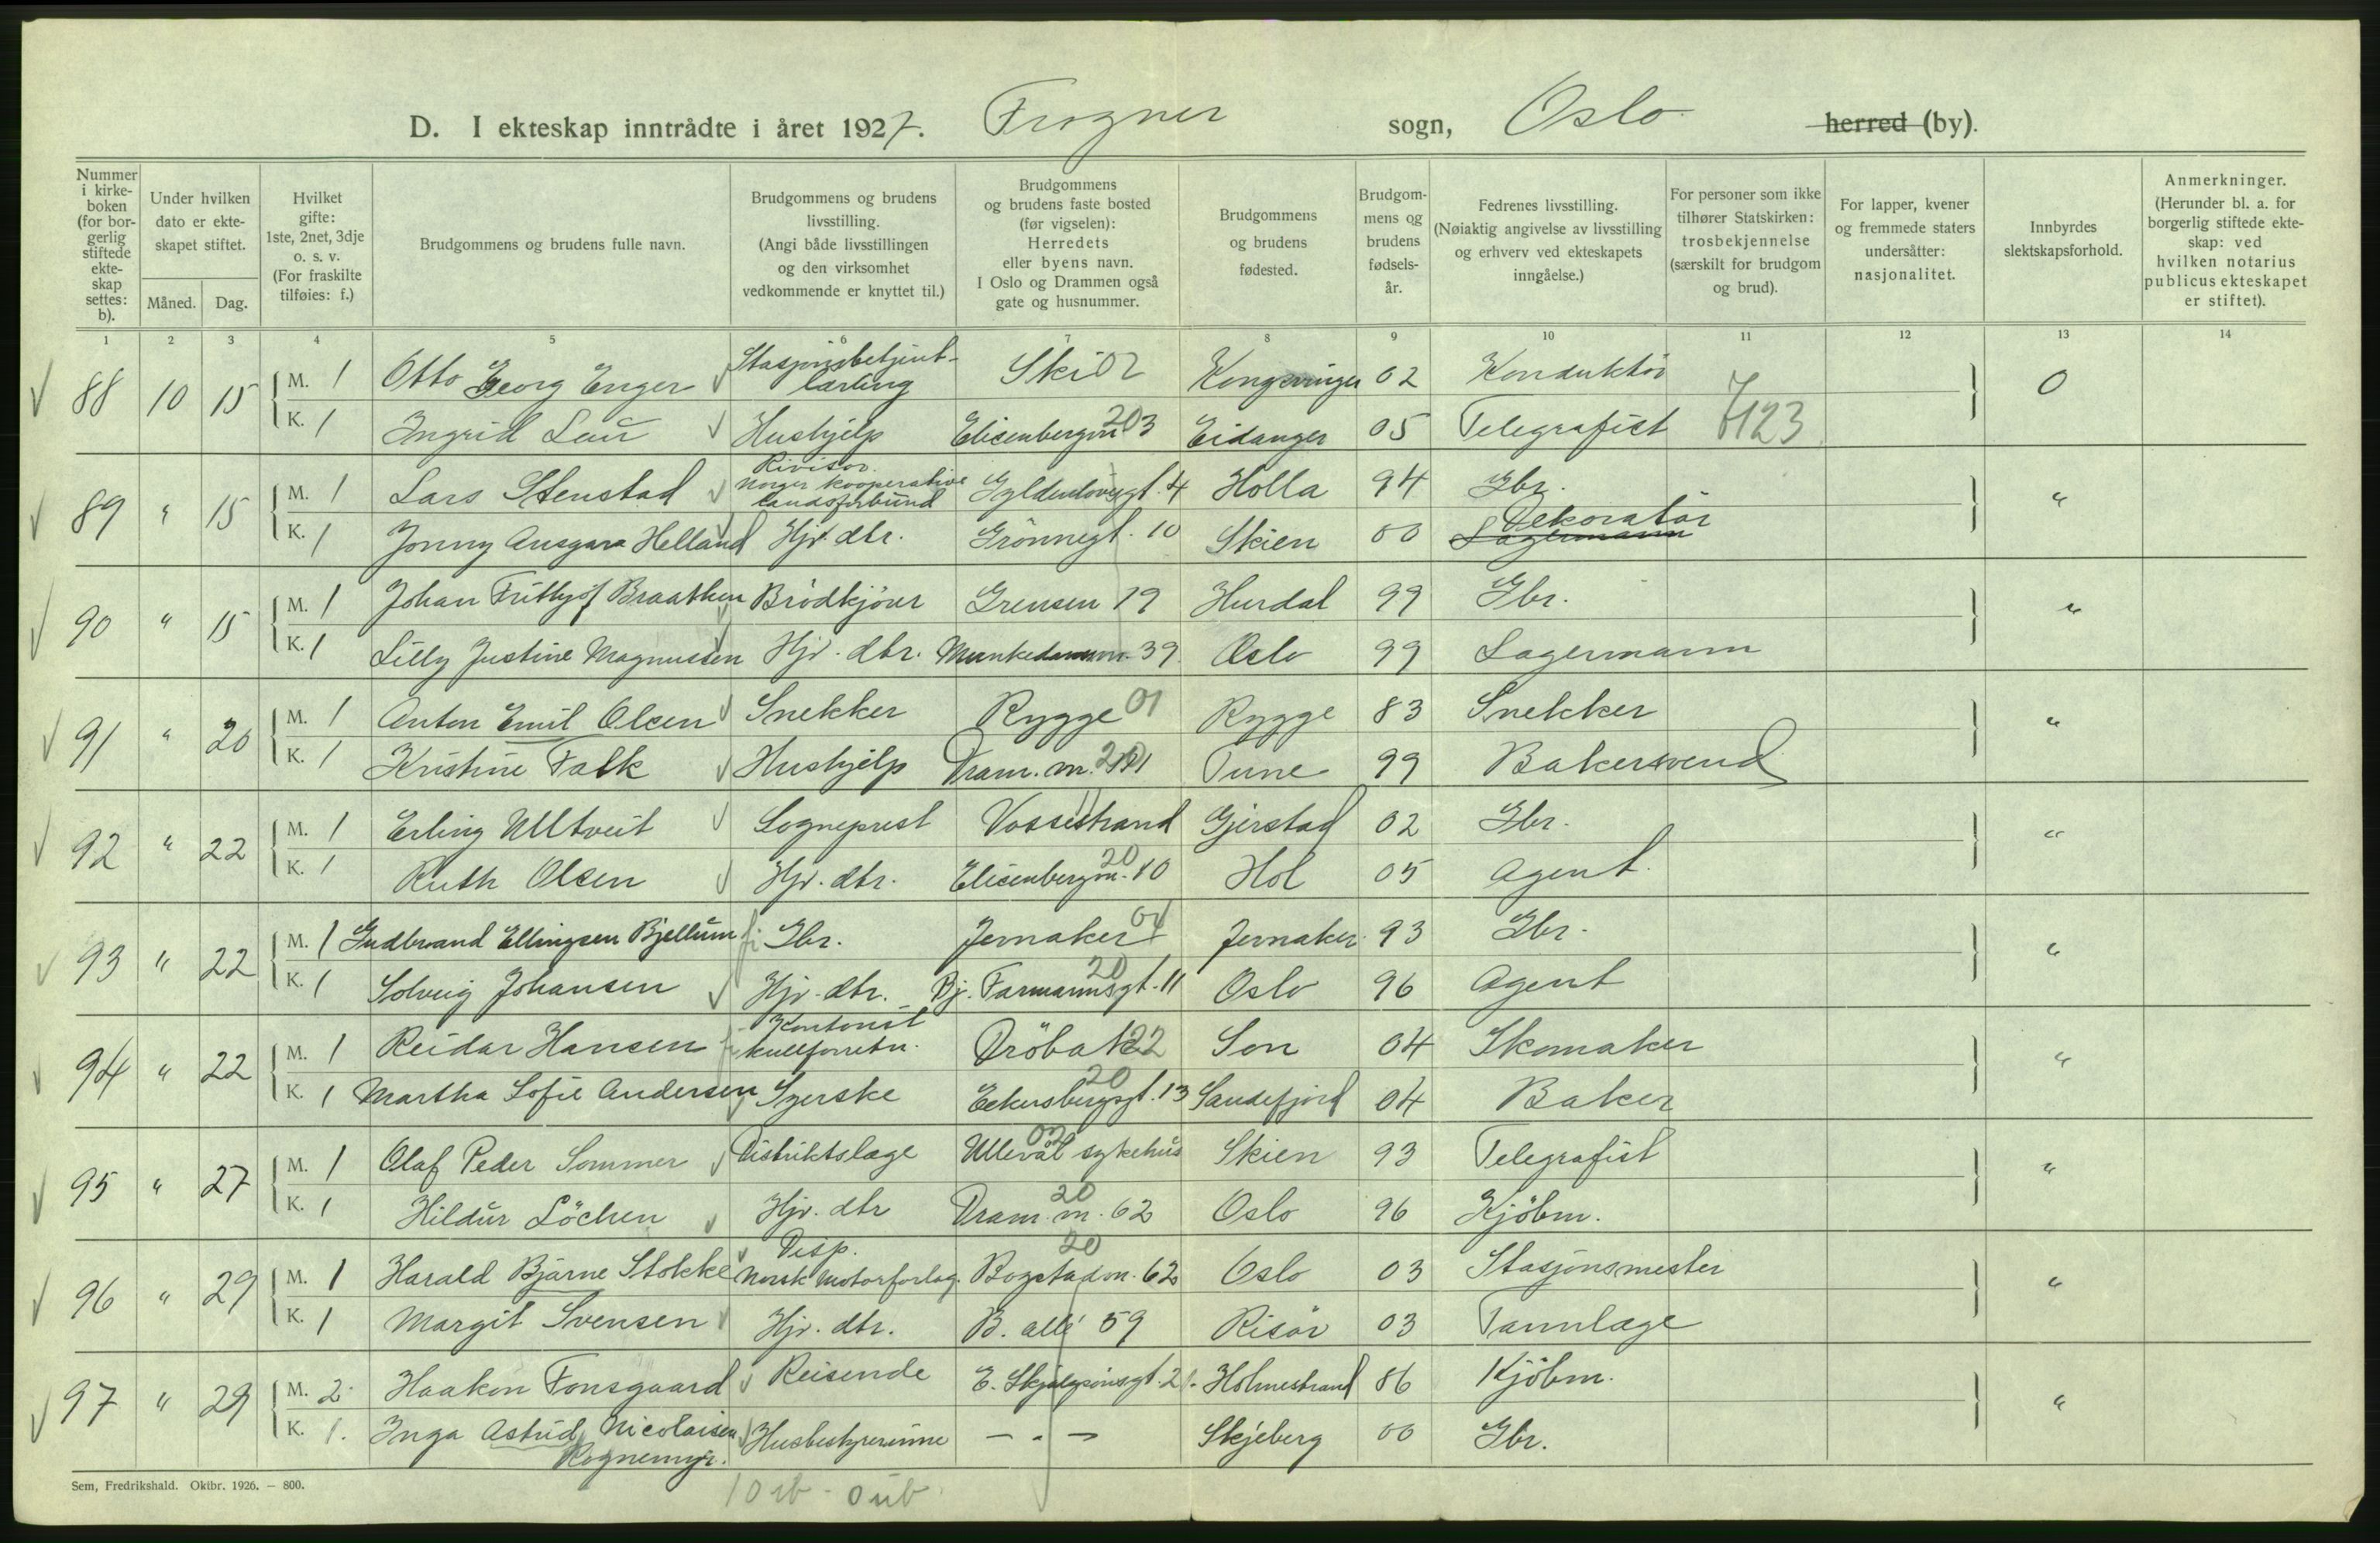 D. I ekteskap inntrådte i året 1927. Frogner sogn, Oslo herred (by).
Nummer i kirkeboken (for borgerlig stiftede ekteskap settes: b).
Under hvilken dato er ekteskapet stiftet.
Måned. Dag.
Hvilket gifte: 1ste, 2net, 3dje o. s. v. (For fraskilte tilføies: f.)
Brudgommens og brudens fulle navn.
Brudgommens og brudens livsstilling. (Angi både livsstillingen og den virksomhet vedkommende er knyttet til.)
Brudgommens og brudens faste bosted (før vigselen): Herredets eller byens navn. I Oslo og Drammen også gate og husnummer.
Brudgommens og brudens fødested.
Brudgommens og brudens fødselsår.
Fedrenes livsstilling. (Nøiaktig angivelse av livsstilling og erhverv ved ekteskapets inngåelse.)
For personer som ikke tilhører Statskirken: trosbekjennelse (særskilt for brudgom og brud).
For lapper, kvener og fremmede staters undersåtter: nasjonalitet.
Innbyrdes slektskapsforhold.
Anmerkninger. (Herunder bl. a. for borgerlig stiftede ekteskap: ved hvilken notarius publicus ekteskapet er stiftet).
1 2 3 4 5 6 7 8 9 10 11 12 13 14
88 10 15 M. 1 Otto Georg Enger Stasjonsbetjent-lærling Ski 02 Kongsvinger 02 Konduktör 0
K. 1 Ingrid Lau Hushjelp Elisenbergvn 203 Eidanger 05 Telegrafist 7123
89 " 15 M. 1 Lars Stenstad Revisor. Norges kooperative landsforbund Gyldenlövsgt. 4 Holla 94 Gbr. "
K. 1 Jonny Ansgara Helland Hjv. dtr. Grönnegt. 10 Skien 00 Lagermann Dekoratör
90 " 15 M. 1 Johan Frithjof Braathen Brödkjörer Grensen 19 Hurdal 99 Gbr. "
K. 1 Lilly Justine Magnussen Hjv. dtr. Munkedamsvn. 39 Oslo 99 Lagermann
91 " 20 M. 1 Anton Emil Olsen Snekker Rygge 01 Rygge 83 Snekker "
K. 1 Kristine Falk Hushjelp Dram. vn. Tune 99 Bakersvend
92 " 22 M. 1 Erling Ulltveit Sogneprest Vossestrand Gjerstad 02 Gbr. "
K. 1 Ruth Olsen Hjv. dtr. Elisenbergvn. 20 10 Hol 05 Agent.
93 " 22 M. 1 Gudbrand Ellingsen Bjellum Gbr. Jevnaker 04 Jevnaker 93 Gbr. "
K. 1 Solveig Johansen Hjv. dtr. Bj. Farmannsgt. 20 11 Oslo 96 Agent
94 " 22 M. 1 Reidar Hansen Kontorist kullforretn. Dröbak 22 Son 04 Skomaker "
K. 1 Martha Sofie Andersen Syerske Eckersbergsgt. 20 13 Sandefjord 04 Baker
95 " 27 M. 1 Olaf Peder Sommer Distriktslæge Ullevål sykehus Skien 93 Telegrafist "
K. 1 Hildur Löchen Hjv. dtr Dram. vn. 20 62 Oslo 96 Kjöbm.
96 " 29 M. 1 Harald Bjarne Stokke Disp. Norsk Motorforlag. Bogstadvn. 20 62 Oslo 03 Stasjonsmester "
K. 1 Margit Svensen Hjv. dtr. B. allé 59 Risör 03 Tannlæge
97 " 29 M. 2 Haakon Fonsgaard Reisende E. Skjalgsönsgt. 21. Holmestrand 86 Kjöbm. "
K. 1. Inga Astrid Nicolaisen Rognemyr. Husbestyrerinne — " — Skjeberg 00 Gbr.
Sem, Fredrikshald. Oktbr. 1926. — 800.
10 ib - 0 ub.